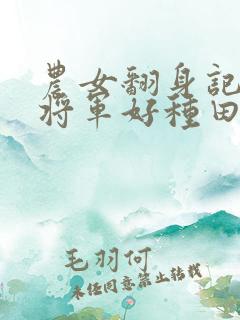 農女翻身記
將軍好種田
毛羽何
未經同意禁止轉載